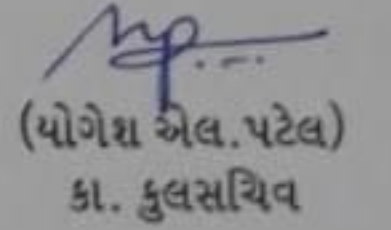 (યોગેશ એલ.પટેલ)
કા. કુલસચિવ